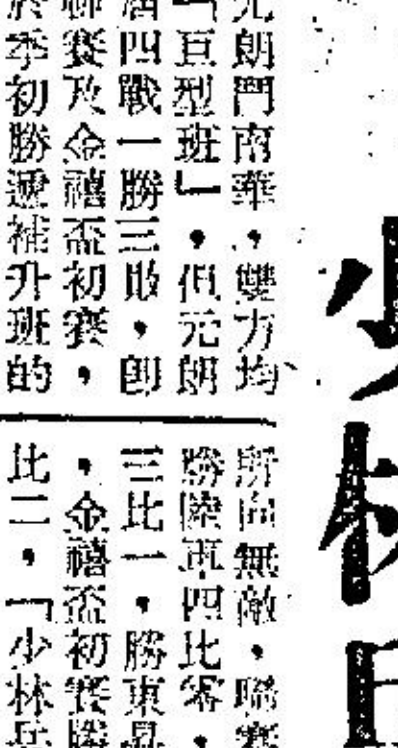 少林兵
元朗鬥南華，雙方均
「巨型班」，但元朗
四戰一勝三敗，卽
聯賽及金禧盃初賽，
於季初勝遞補升班的
所向無敵，聯賽
勝陸軍四比零，
三比一，勝東昇
，金禧盃初賽勝
比二，「少林兵